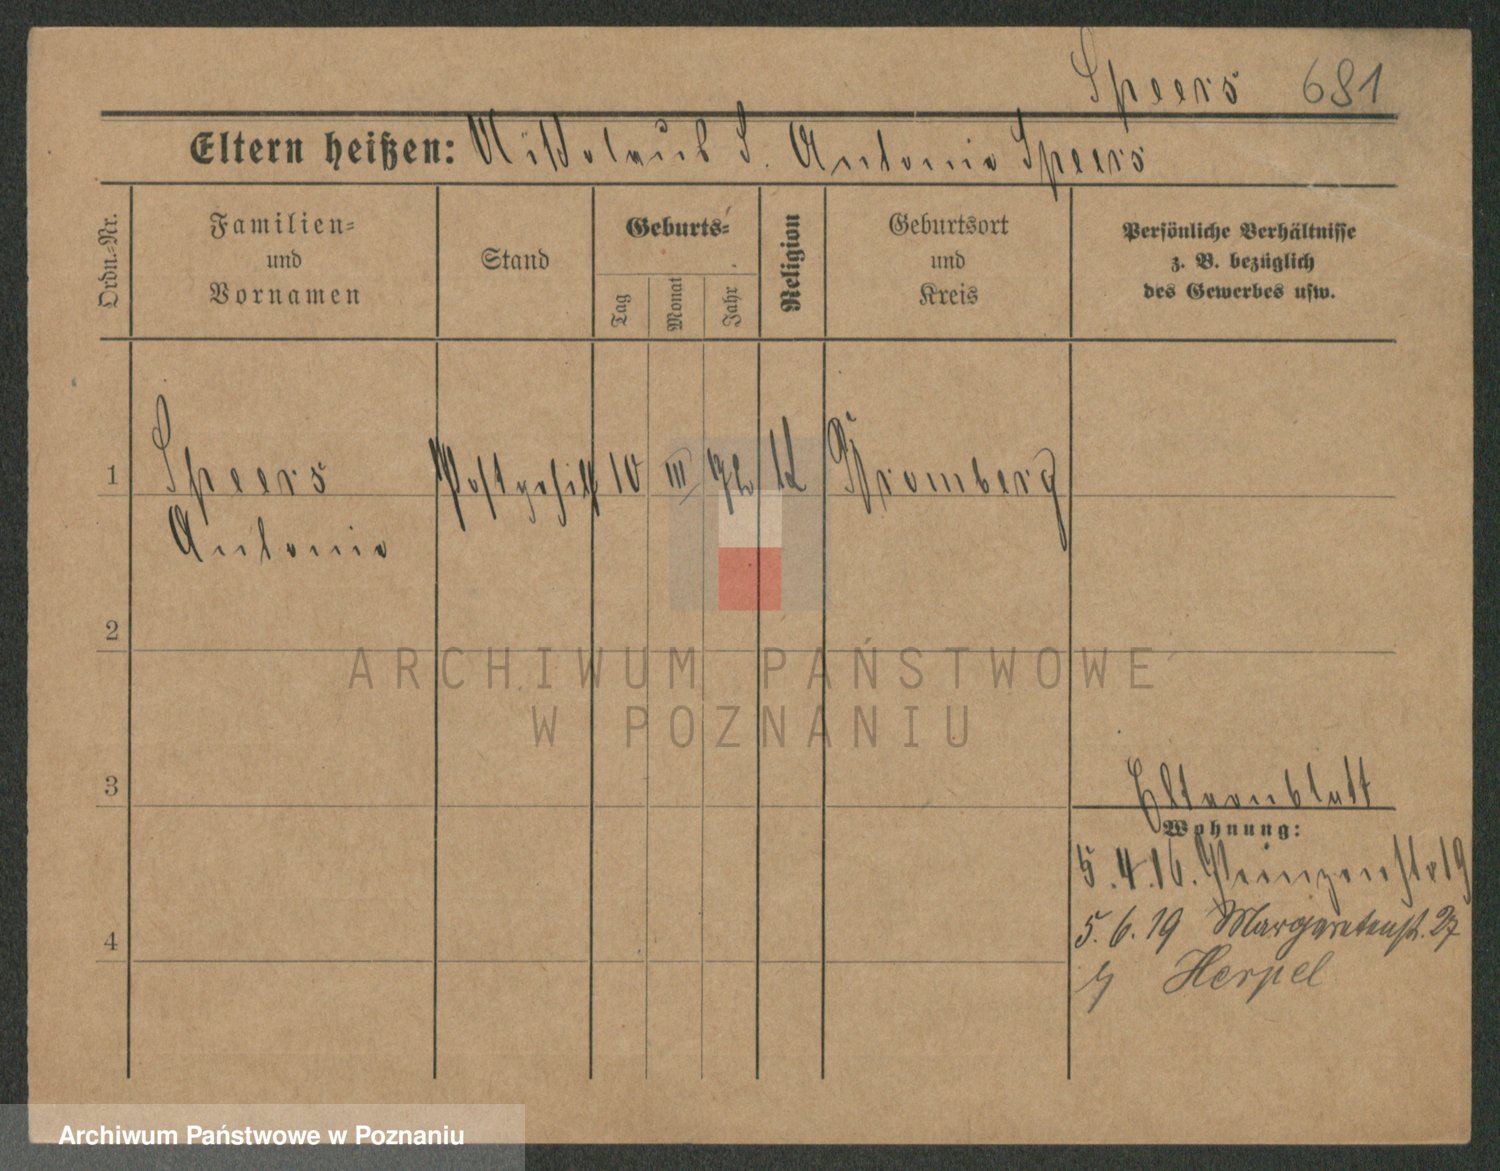 Speers 681
Eltern heißen: Nikolaus S. Antonie Speers
Ordn.-Nr.
Familien-
und
Vornamen
Stand
Geburts-
Tag
Monat
Jahr
Religion
Geburtsort
und
Kreis
Persönliche Verhältnisse
z. B. bezüglich
des Gewerbes usw.
1 Speers Postgehilf 10 III k Bromberg
Antonie
2
3
4
ARCHIWUM PAŃSTWOWE
W POZNANIU
Elternblatt
Wohnung:
5.4.16. Prinzenstr 19
5.6.19 Margaretenstr. 27
Herpel
Archiwum Państwowe w Poznaniu